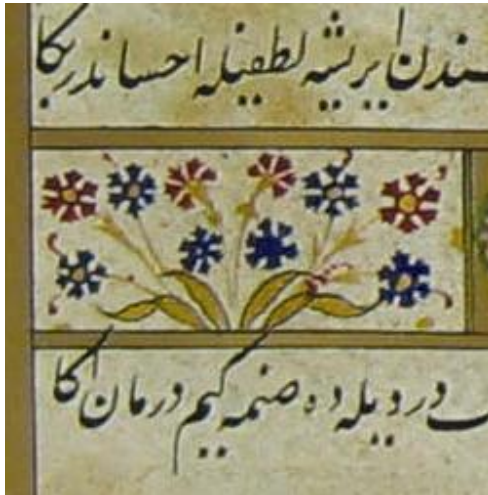 ایریشه لطفیله احساندر بکا
دردیله ده صنمه کیم درمان اکا